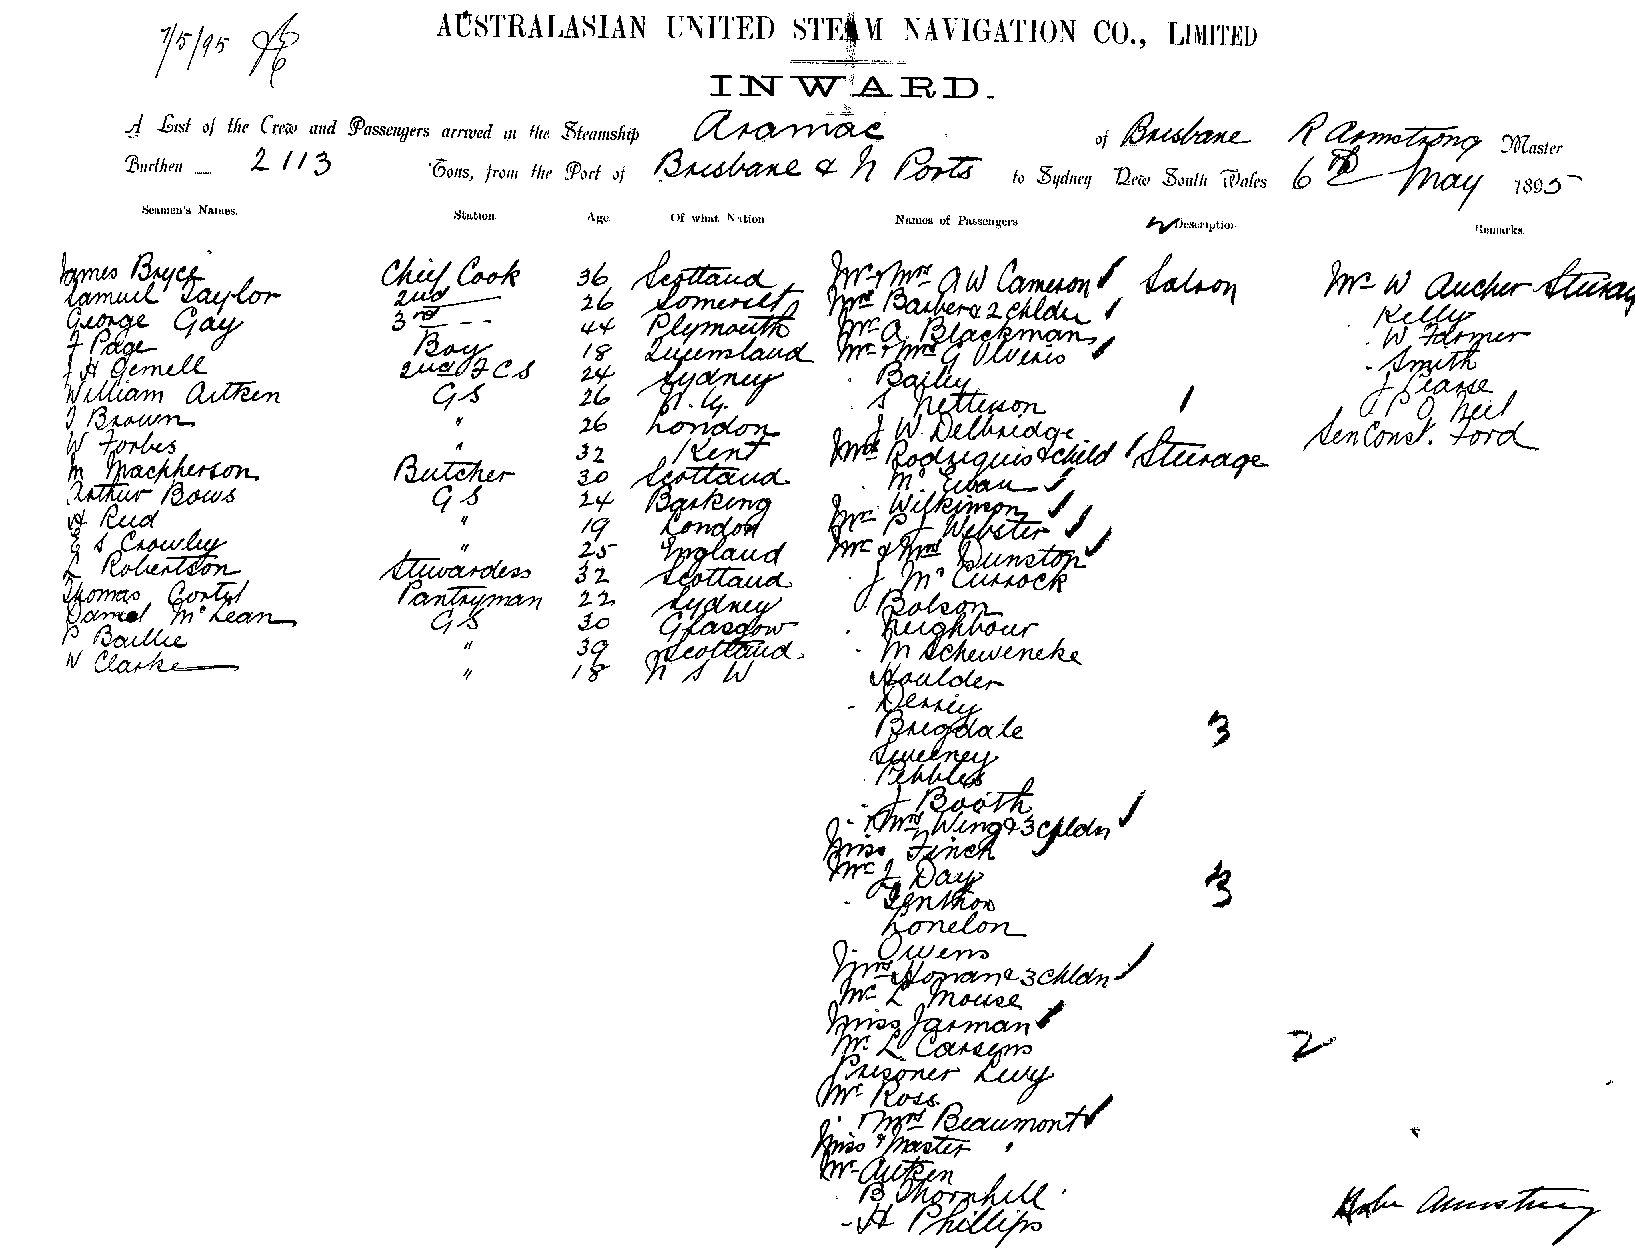 7/5/95
AUSTRALASIAN UNITED STEAM NAVIGATION CO., LIMITED
INWARD.
A List of the Crew and Passengers arrived in the Steamship Aramac of Brisbane R Armstrong Master
Burthen 2113 Tons, from the Port of Brisbane & N Ports to Sydney New South Wales 6th May 1895
Seamen's Names. Station. Age. Of what Nation Names of Passengers Description Remarks.
James Bryce Chief Cook 36 Scotland Mr & Mrs A W Cameron Saloon Mr W Aucher Sturage
Samuel Taylor 2nd 26 Somerset Mrs Barber & 2 chldn Kelly
George Gay 3rd 44 Plymouth Mr A Blackman W Farmer
F Page Boy 18 Queensland Mr & Mrs G Smith
J H Gemell 2nd F C S 24 Sydney Bailey J Pearse
William Aitken G S 26 N. G. S Petterson P O Neil
J Brown " 26 London J W Delbridge Sen Const. Ford
W Forbes " 32 Kent Mrs Rodriguis & child Sturage
M Macpherson Butcher 30 Scotland McEwan
Arthur Bows G S 24 Barking Mr Wilkinson
Reid " 19 London Mr P J Webster
S Crowley " 25 England Mr & Mrs Dunston
L Robertson Stewardess 32 Scotland J McCurrock
Thomas Pantryman 22 Sydney Bolson
Daniel McLean G S 30 Glasgow Neighbour
P Baillie " 39 Scotland M Scheweneke
W Clarke " 18 N S W Houlder
Derrey
Brigdale 3
Sweeney
Pebbles
J Booth
Mrs Wing & 3 chldn
Miss Finch
Mr J Day 3
Lenthon
Lonelon
Owens
Mrs Homan & 3 chldn
Mr L Mouse
Miss Jarman
Mr L Carsens 2
Prisoner Levy
Mr Ross
Mrs Beaumont
Miss & Master "
Mr Aitken
B Thornhill
H Phillips
Armstrong